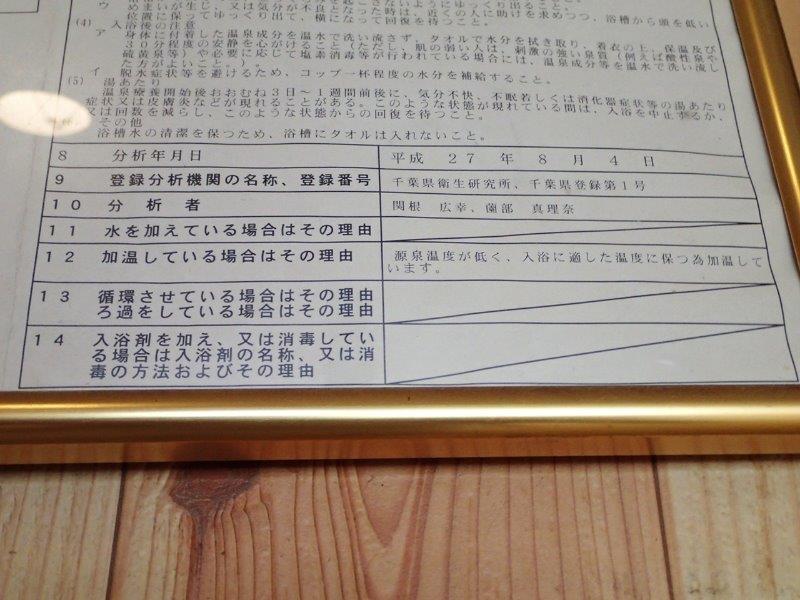 ウ めまいが生じ、又は気分が不良となった時は、近くの人に助けを求めつつ、浴槽から頭を低い
位置に保ってゆっくり出て、横になって回復を待つこと。
(4) 入浴後の注意
ア 身体に付着した温泉成分を温水で洗い流さず、タオルで水分を拭き取り、着衣の上、保温及び
30分程度の安静を心がけること(ただし、肌の弱い人は、刺激の強い泉質(例えば酸性泉や
硫黄泉等)や必要に応じて塩素消毒等が行われている場合には、温泉成分等を温水で洗い流し
た方がよいこと。)。
イ 脱水症状等を避けるため、コップ一杯程度の水分を補給すること。
(5) 湯あたり
温泉療養開始後おおむね3日~1週間前後に、気分不快、不眠若しくは消化器症状等の湯あたり
症状又は皮膚炎などが現れることがある。このような状態が現れている間は、入浴を中止するか、
又は回数を減らし、このような状態からの回復を待つこと。
その他
浴槽水の清潔を保つため、浴槽にタオルは入れないこと。
8 分析年月日 平成 27 年 8 月 4 日
9 登録分析機関の名称、登録番号 千葉県衛生研究所、千葉県登録第1号
10 分析者 関根 広幸、薗部 真理奈
11 水を加えている場合はその理由
12 加温している場合はその理由 源泉温度が低く、入浴に適した温度に保つ為加温して
います。
13 循環させている場合はその理由
ろ過をしている場合はその理由
14 入浴剤を加え、又は消毒してい
る場合は入浴剤の名称、又は消
毒の方法およびその理由